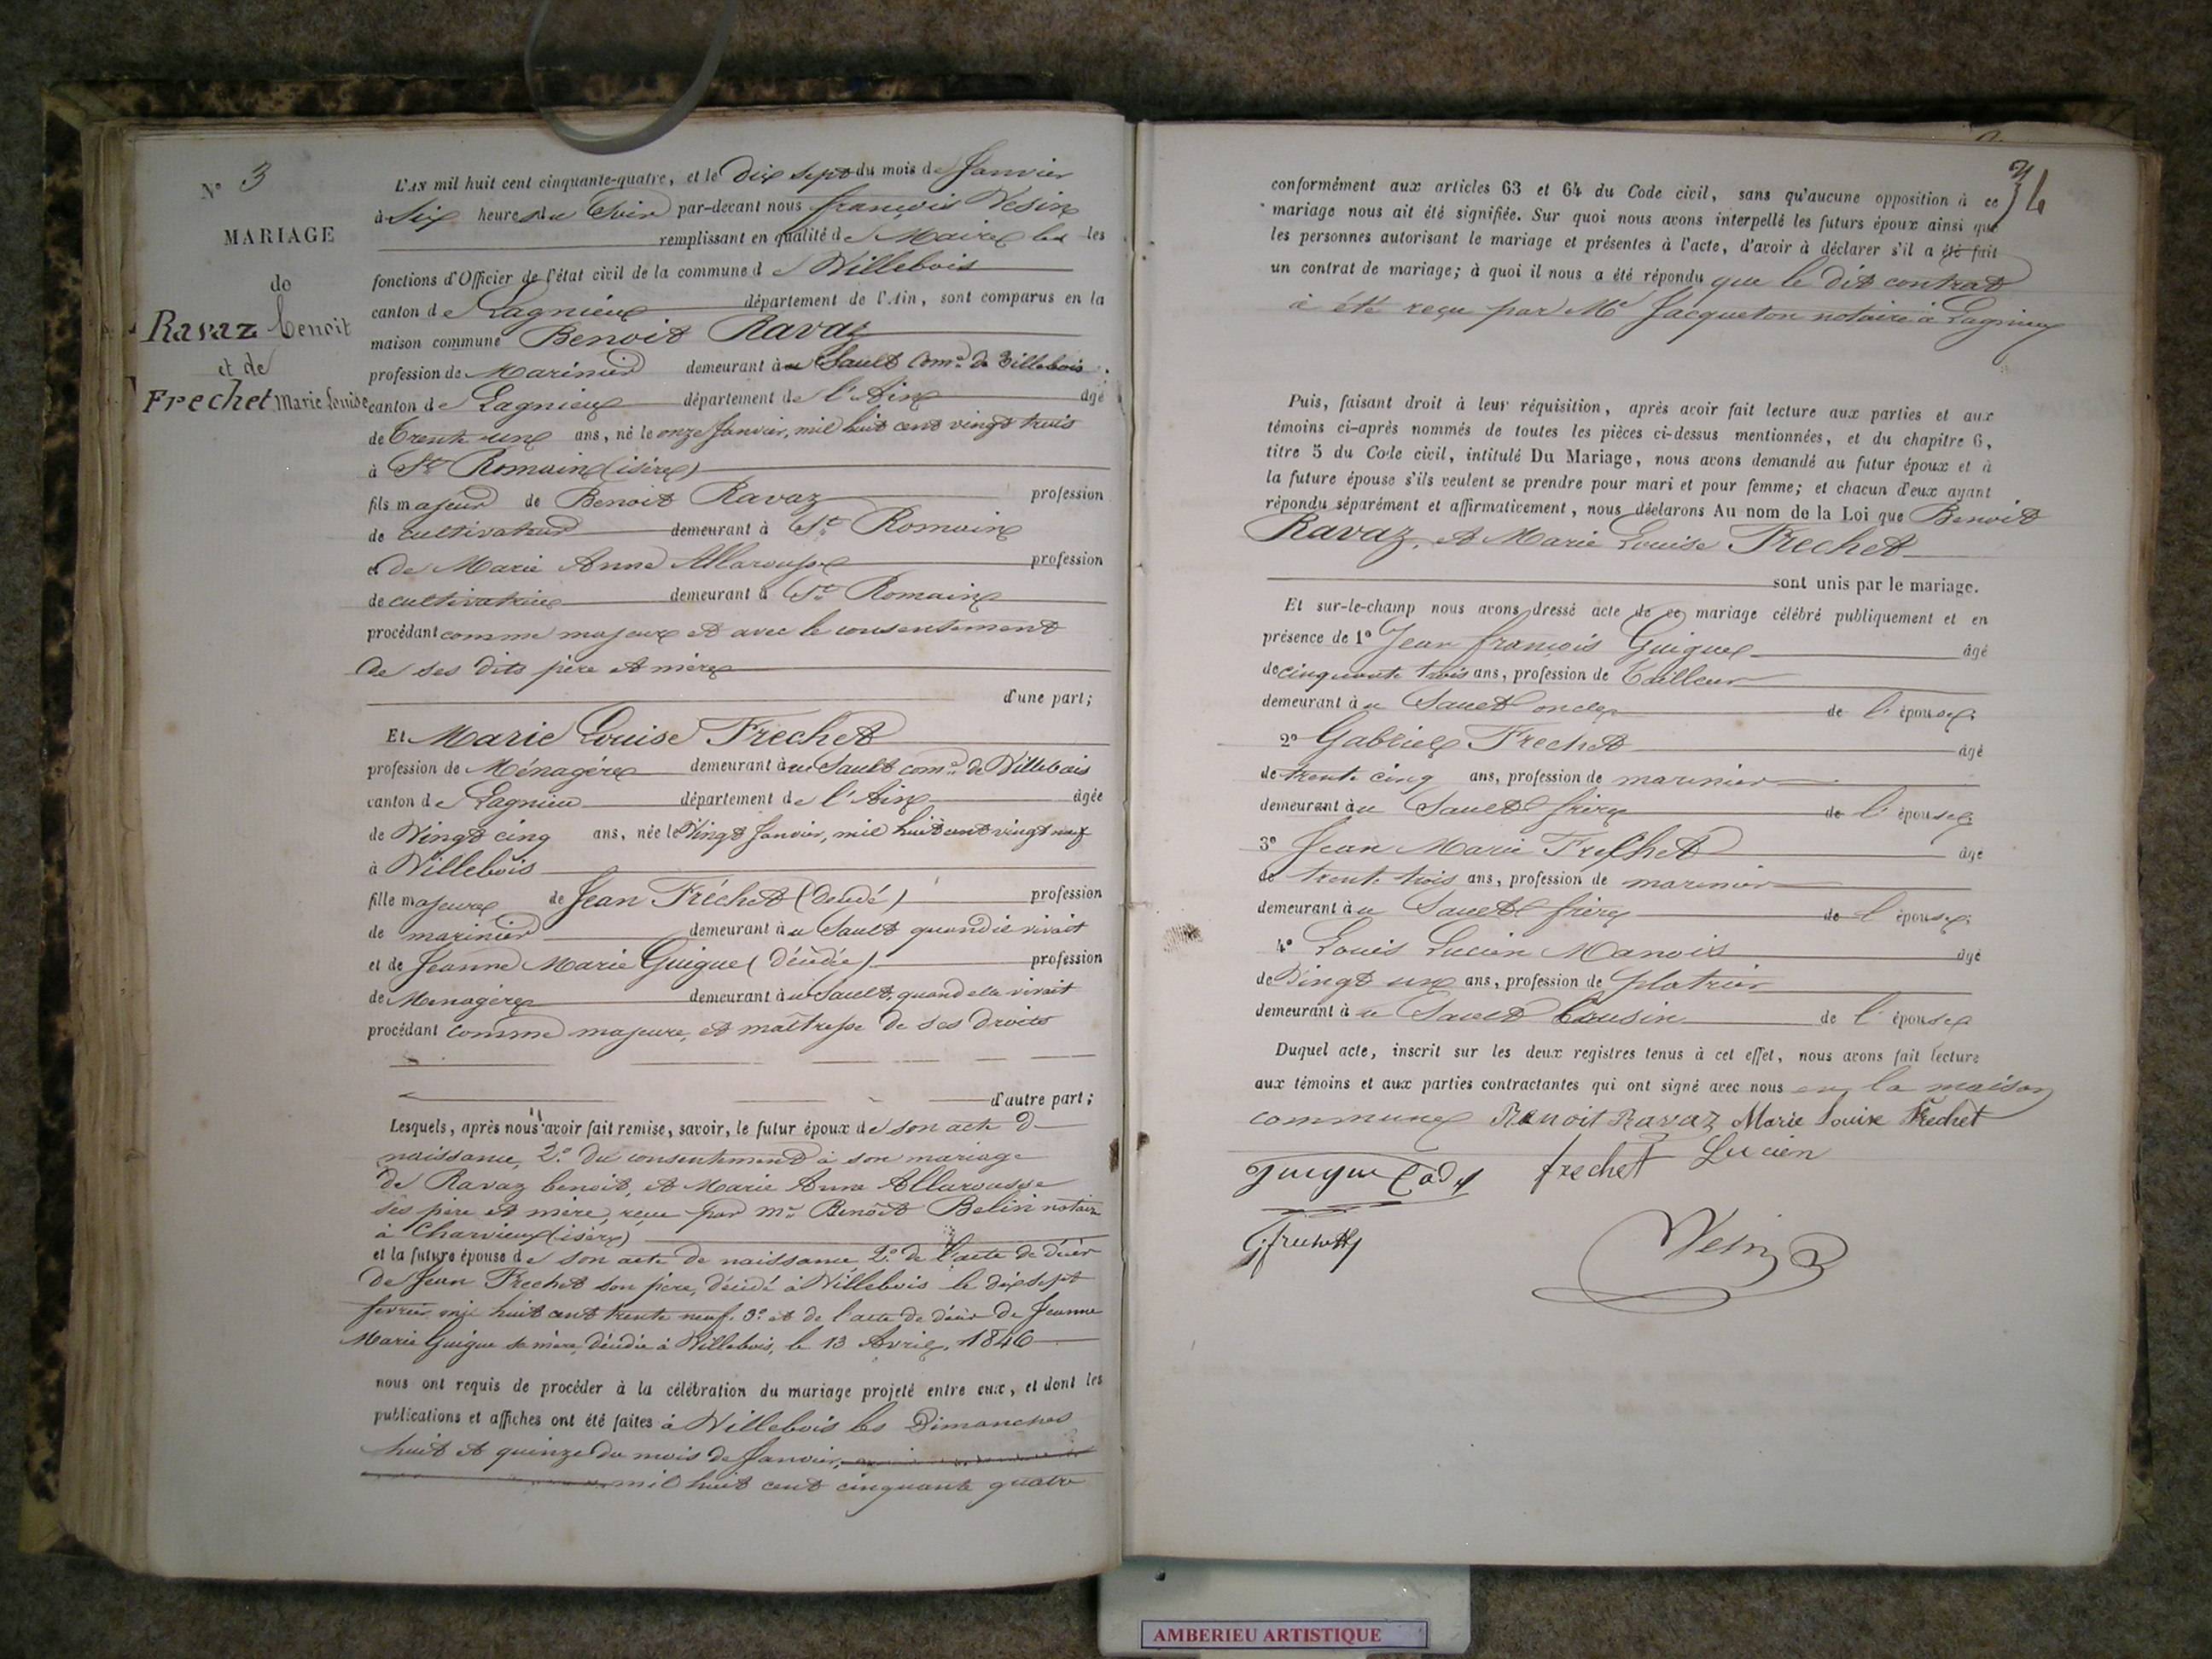 N° 3
MARIAGE
de
Ravaz benoit
et de
Frechet Marie Louise
L'AN mil huit cent cinquante-quatre, et le Dix sept du mois de Janvier
à Six heures du Soir par-devant nous françois Vesin
remplissant en qualité de Maire les les
fonctions d'Officier de l'état civil de la commune de Villebois
canton de Lagnieu département de l'Ain, sont comparus en la
maison commune Benoit Ravaz
profession de Marinier demeurant à au Sault Com.ne de Villebois
canton de Lagnieu département de l'Ain âgé
de trente un ans, né le onze Janvier, mil huit cent vingt trois
à St Romain (isère)
fils majeur de Benoit Ravaz profession
de cultivateur demeurant à St Romain
et de Marie Anne Allarousse profession
de cultivatrice demeurant à St Romain
procédant comme majeur et avec le consentement
de ses dits père et mère
d'une part;
Et Marie Louise Frechet
profession de Ménagère demeurant à au Sault com.ne de Villebois
canton de Lagnieu département de l'Ain âgée
de Vingt cinq ans, née le Vingt Janvier, mil huit cent vingt neuf
à Villebois
fille majeure de Jean Fréchet (décédé) profession
de marinier demeurant à au Sault quand il vivait
et de Jeanne Marie Guigue (décédée) profession
de Menagère demeurant à au Sault, quand elle vivait
procédant comme majeure, et maîtresse de ses droits
d'autre part;
Lesquels, après nous avoir fait remise, savoir, le futur époux de son acte de
naissance, 2° du consentement à son mariage
de Ravaz benoit, et Marie Anne Allarousse
ses père et mère, reçu par Me Benoit Belin notaire
à Charvieux (isère)
et la future épouse de son acte de naissance 2° de l'acte de décès
de Jean Frechet son père, décédé à Villebois le dix sept
fevrier mil huit cent trente neuf. 3° et de l'acte de décès de Jeanne
Marie Guigue sa mère, décédée à Villebois, le 13 Avril, 1846
nous ont requis de procéder à la célébration du mariage projeté entre eux, et dont les
publications et affiches ont été faites à Villebois les Dimanches
huit et quinze du mois de Janvier,
mil huit cent cinquante quatre
34
conformément aux articles 63 et 64 du Code civil, sans qu'aucune opposition à ce
mariage nous ait été signifiée. Sur quoi nous avons interpellé les futurs époux ainsi que
les personnes autorisant le mariage et présentes à l'acte, d'avoir à déclarer s'il a été fait
un contrat de mariage; à quoi il nous a été répondu que le dit contrat
à été reçu par Me Jacqueton notaire à Lagnieu
Puis, faisant droit à leur réquisition, après avoir fait lecture aux parties et aux
témoins ci-après nommés de toutes les pièces ci-dessus mentionnées, et du chapitre 6,
titre 5 du Code civil, intitulé Du Mariage, nous avons demandé au futur époux et à
la future épouse s'ils veulent se prendre pour mari et pour femme; et chacun d'eux ayant
répondu séparément et affirmativement, nous déclarons Au nom de la Loi que Benoit
Ravaz, et Marie Louise Frechet
sont unis par le mariage.
Et sur-le-champ nous avons dressé acte de ce mariage célébré publiquement et en
présence de 1° Jean françois Guigue âgé
de cinquante trois ans, profession de Tailleur
demeurant à au Sault oncle de l'épouse;
2° Gabriel Frechet âgé
de trente cinq ans, profession de marinier
demeurant à au Sault frère de l'épouse;
3° Jean Marie Frechet âgé
de trente trois ans, profession de marinier
demeurant à au Sault frère de l'épouse;
4° Louis Lucien Manois âgé
de Vingt un ans, profession de platrier
demeurant à au Sault Cousin de l'épouse
Duquel acte, inscrit sur les deux registres tenus à cet effet, nous avons fait lecture
aux témoins et aux parties contractantes qui ont signé avec nous en la maison
commune Benoit Ravaz Marie Louise Frechet
Guigue frechet Lucien
G frechet Vesin
AMBERIEU ARTISTIQUE